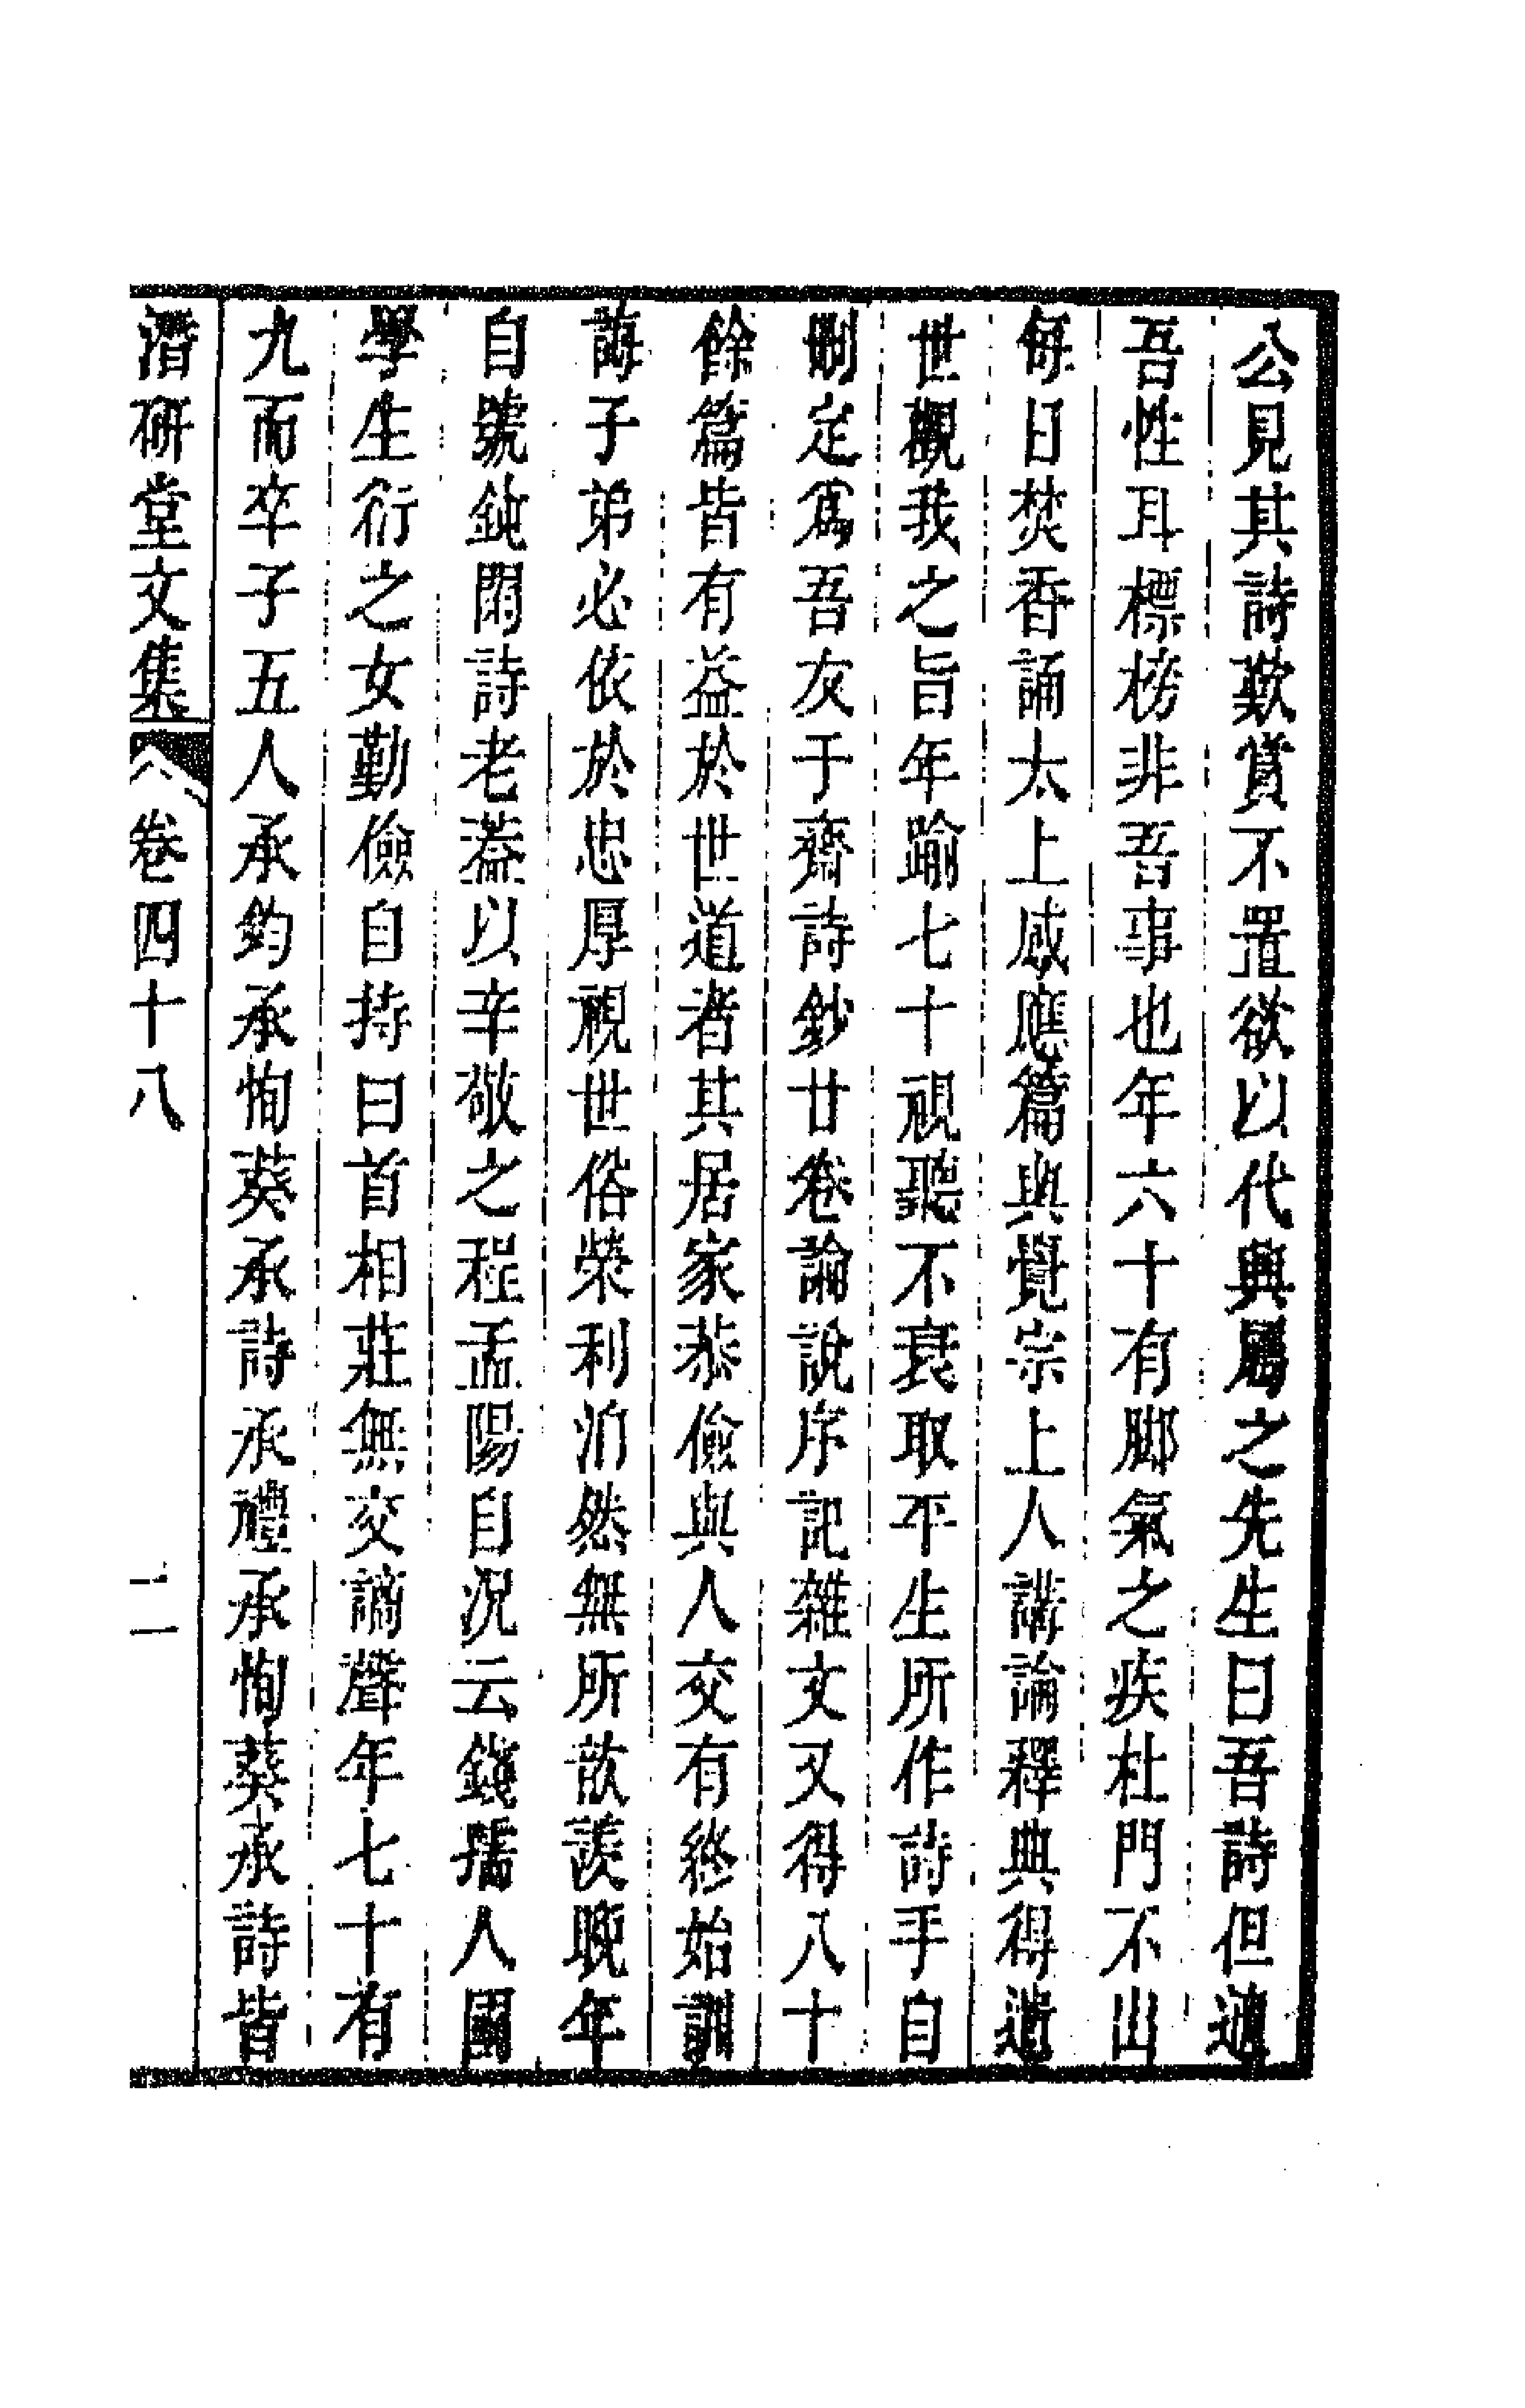 公見其詩歎賞不置欲以代興屬之先生曰吾詩但適
吾性耳標榜非吾事也年六十有脚氣之疾杜門不出
每日焚香誦太上感應篇與覺宗上人講論釋典得遺
世觀我之旨年踰七十視聽不衰取平生所作詩手自
刪定爲吾友于齋詩鈔廿卷論說序記雜文又得八十
餘篇皆有益於世道者其居家恭儉與人交有終始訓
誨子弟必依於忠厚視世俗榮利泊然無所歆羨晚年
自號鈍閑詩老葢以辛敬之程孟陽自況云錢孺人國
學生衍之女勤儉自持曰首相莊無交謫聲年七十有
九而卒子五人承鈞承恂葵承詩承禮承恂葵承詩皆
潛研堂文集 卷四十八 二